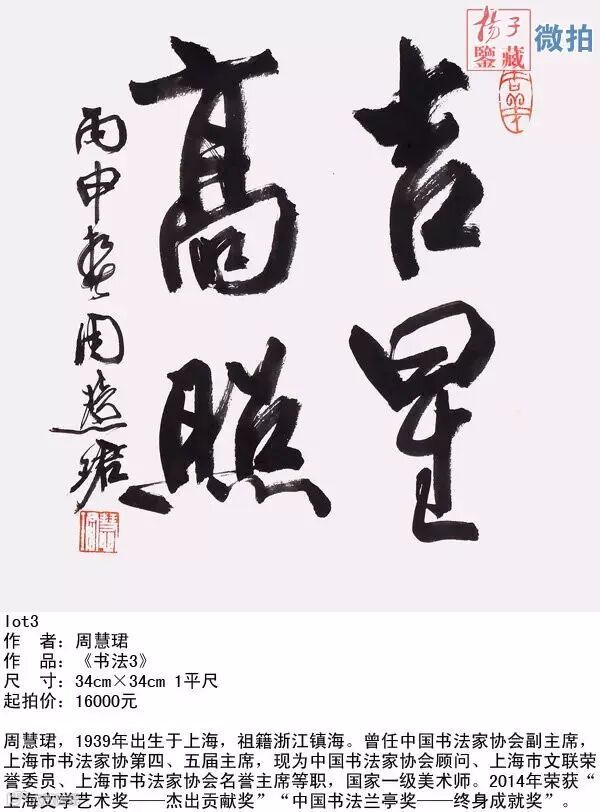 揚子
鑒藏
微拍
吉星
高照
丙申春周慧珺
lot3
作 者：周慧珺
作 品：《书法3》
尺 寸：34cm×34cm 1平尺
起拍价：16000元
周慧珺，1939年出生于上海，祖籍浙江镇海。曾任中国书法家协会副主席，
上海市书法家协第四、五届主席，现为中国书法家协会顾问、上海市文联荣
誉委员、上海市书法家协会名誉主席等职，国家一级美术师。2014年荣获“
上海文学艺术奖——杰出贡献奖”“中国书法兰亭奖——终身成就奖”。